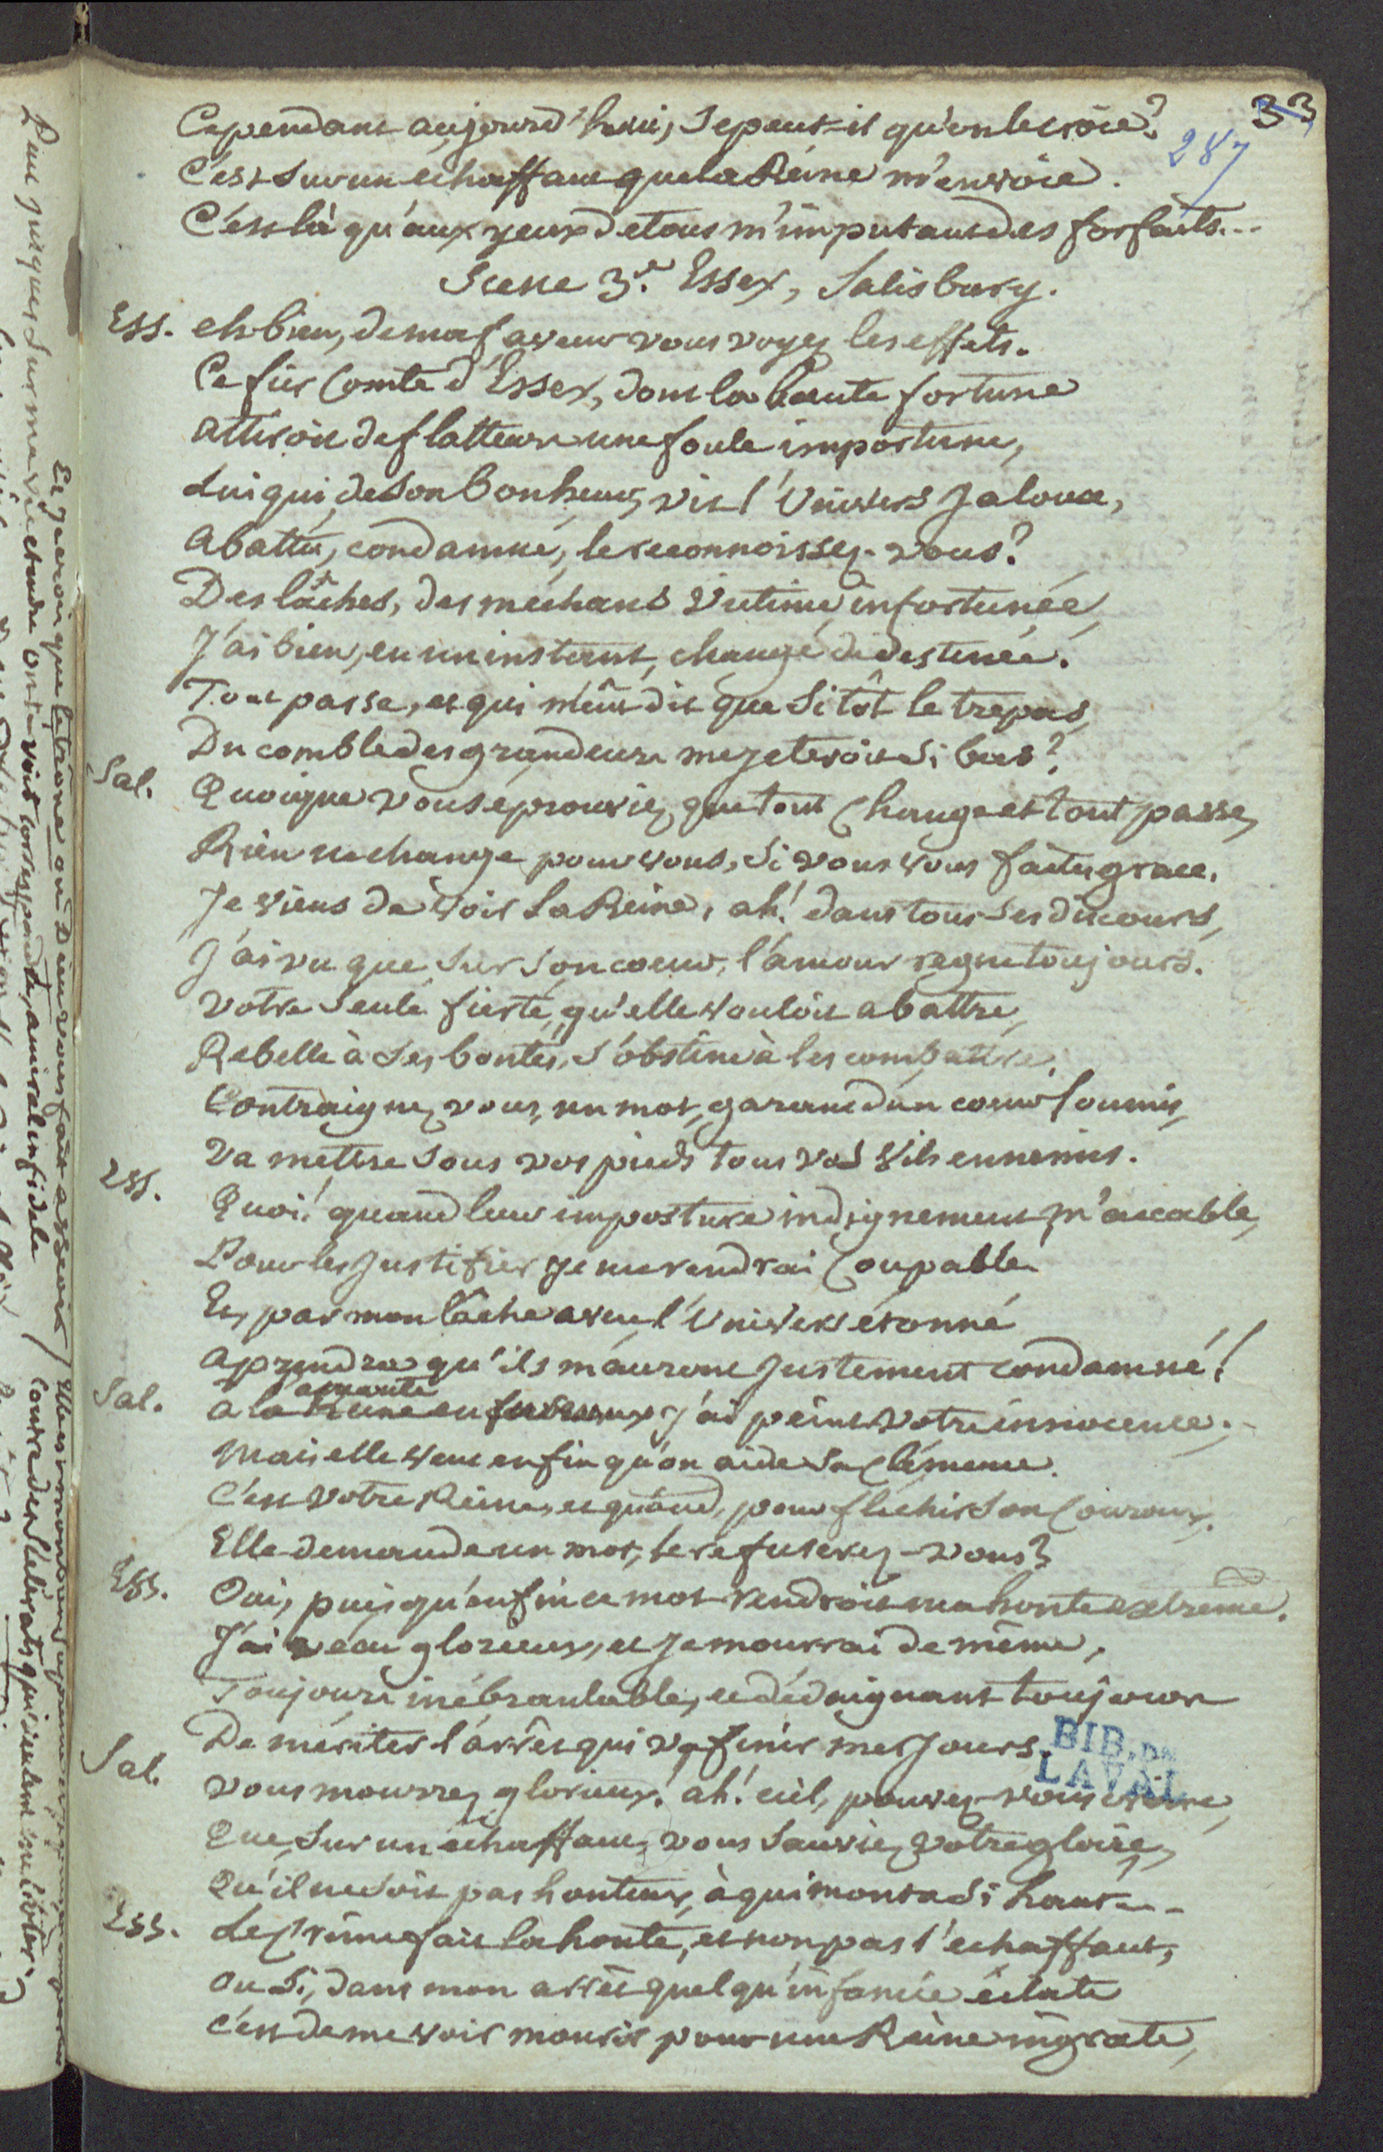 33
287
Cependant aujourd'hui, se peut-il qu'on le croie?
C'est sur un échaffaut que la Reine m'envoie.
C'est là qu'aux yeux de tous m'imputant des forfaits...
Scene 3.e Essex, Salisbury.
Ess. eh bien, de ma faveur vous voyez les effets.
Ce fier Comte d'Essex, dont la haute fortune
attiroit de flatteurs une foule importune,
Lui qui, de son bonheur, vit l'Univers jaloux,
abattu, condamné, le reconnoissez-vous?
Des lâches, des méchans victime infortunée,
J'ai bien, en un instant, changé de destinée.
Tout passe, et qui m'eût dit que sitôt le trepas,
Du comble des grandeurs me jeteroit si bas?
Sal. Quoique vous éprouviez que tout change et tout passe,
Rien ne change pour vous, si vous vous faites grace.
Je viens de voir la Reine, ah! dans tous ses discours,
J'ai vu que sur son coeur, l'amour regne toujours.
Votre seule fierté, qu'elle vouloit abattre,
Rebelle à ses bontés, s'obstine à les combattre.
Contraignez vous, un mot, garant d'un coeur soumis,
Va mettre sous vos pieds tous vos vils ennemis.
Ess. Quoi! quand leur imposture indignement m'accable,
Pour les justifier je me rendrai coupable
Et, par mon lâche aveu, l'Univers étonné
aprendra qu'ils m'auront justement condamné!
Sal. amante
à la Reine en j'ai peint votre innocence;
Mais elle veut enfin qu'on aide sa clémence.
C'est votre Reine, et quand, pour fléchir son couroux,
Elle demande un mot, le refuserez-vous?
Ess. Oui, puisqu'enfin ce mot rendroit ma honte extrême.
J'ai vécu glorieux, et je mourrai de même,
Toujours inébranlable, et dédaignant toujours
De mériter l'arrêt qui va finir mes jours.
Sal. vous mourrez glorieux! ah! ciel, pouvez-vous croire,
Que, sur un échaffaut, vous sauviez votre gloire,
Qu'il ne soit pas honteux, à qui monta si haut...
Ess. Le crime fait la honte, et non pas l'échaffaut,
ou si, dans mon arrêt quelqu'infamie éclate
c'est de me voir mourir pour une Reine ingrate,
BIB. DE
LAVAL
Et je crois que le trône où Dieu vous fait asseoir